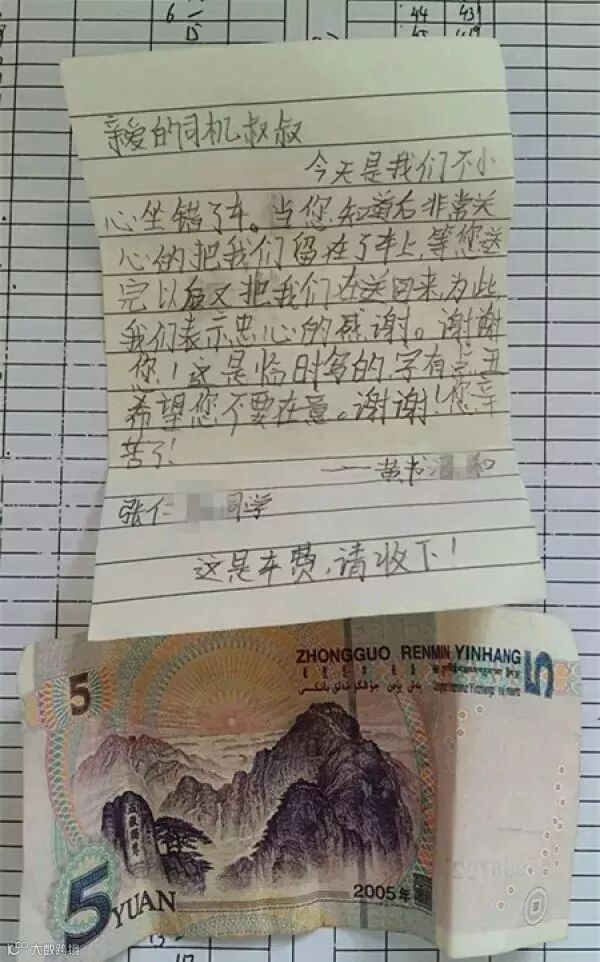 6
15
44 43
亲爱的司机叔叔
今天是我们不小
心坐错了车。当您知道后非常关
心的把我们留在了车上,等您送
完以后又把我们在送回来,为此
我们表示忠心的感谢。谢谢
您!这是临时写的,字有点丑
希望您不要在意。谢谢!您辛
苦了!
——黄书 和
张仁 同学
这是车费,请收下!
ZHONGGUO RENMIN YINHANG
5
5
5 YUAN
2005年
大数跨境